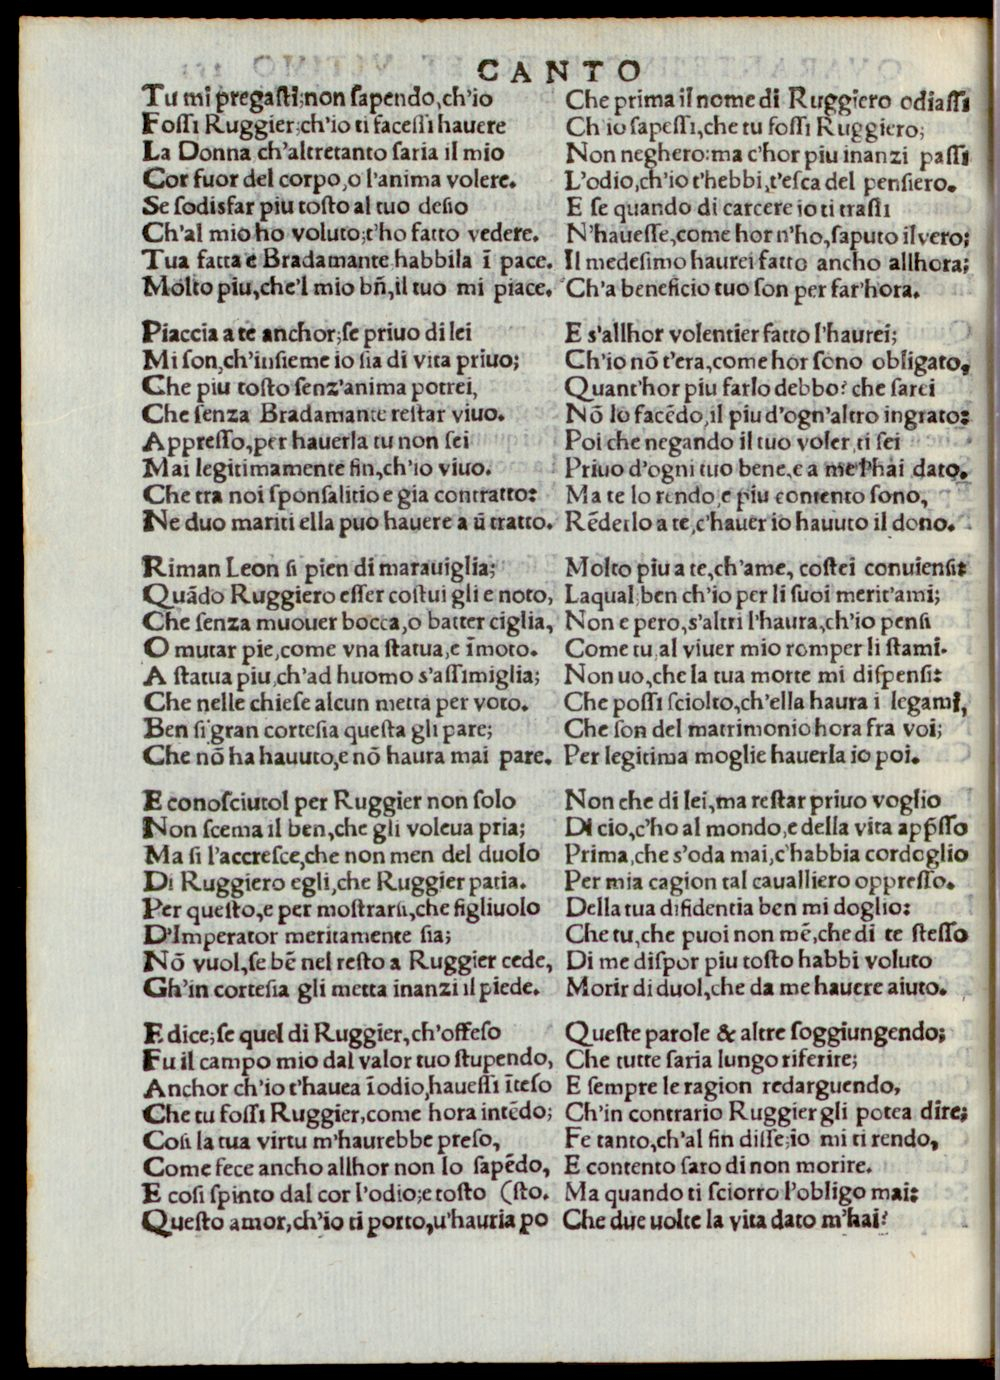 CANTO
Tu mi pregasti;non sapendo,ch'io
Fossi Ruggier;ch'io ti facessi hauere
La Donna ch'altretanto saria il mio
Cor fuor del corpo,o l'anima volere.
Se sodisfar piu tosto al tuo desio
Ch'al mio ho voluto;t'ho fatto vedere.
Tua fatta e Bradamante habbila ī pace.
Molto piu,che'l mio bñ,il tuo mi piace.
Piaccia a te anchor;se priuo di lei
Mi son,ch'insieme io sia di vita priuo;
Che piu tosto senz'anima potrei,
Che senza Bradamante restar viuo.
Appresso,per hauerla tu non sei
Mai legitimamente fin,ch'io viuo.
Che tra noi sponsalitio e gia contratto:
Ne duo mariti ella puo hauere a ū tratto.
Riman Leon si pien di marauiglia;
Quādo Ruggiero esser costui gli e noto,
Che senza muouer bocca,o batter ciglia,
O mutar pie,come vna statua,e īmoto.
A statua piu,ch'ad huomo s'assimiglia;
Che nelle chiese alcun metta per voto.
Ben si gran cortesia questa gli pare;
Che nō ha hauuto,e nō haura mai pare.
E conosciutol per Ruggier non solo
Non scema il ben,che gli voleua pria;
Ma si l'accresce,che non men del duolo
Di Ruggiero egli,che Ruggier patia.
Per questo,e per mostrarsi,che figliuolo
D'Imperator meritamente sia;
Nō vuol,se bē nel resto a Ruggier cede,
Gh'in cortesia gli metta inanzi il piede.
E dice;se quel di Ruggier,ch'offeso
Fu il campo mio dal valor tuo stupendo,
Anchor ch'io t'hauea īodio,hauessi īteso
Che tu fossi Ruggier,come hora intēdo;
Cosi la tua virtu m'haurebbe preso,
Come fece ancho allhor non lo sapēdo,
E cosi spinto dal cor l'odio;e tosto (sto.
Questo amor,ch'io ti porto,u'hauria po
Che prima il nome di Ruggiero odiassi
Ch io sapessi,che tu fossi Ruggiero;
Non neghero:ma c'hor piu inanzi passi
L'odio,ch'io t'hebbi,t'esca del pensiero.
E se quando di carcere io ti trassi
N'hauesse,come hor n'ho,saputo il vero;
Il medesimo haurei fatto ancho allhora;
Ch'a beneficio tuo son per far'hora.
E s'allhor volentier fatto l'haurei;
Ch'io nō t'era,come hor sono obligato,
Quant'hor piu farlo debbo? che sarei
Nō lo facēdo,il piu d'ogn'altro ingrato:
Poi che negando il tuo voler,ti sei
Priuo d'ogni tuo bene,e a me l'hai dato.
Ma te lo rendo,e piu contento sono,
Rēderlo a te,c'hauer io hauuto il dono.
Molto piu a te,ch'ame, costei conuiensi:
Laqual,ben ch'io per li suoi merit'ami;
Non e pero,s'altri l'haura,ch'io pensi
Come tu,al viuer mio romper li stami.
Non uo,che la tua morte mi dispensi:
Che possi sciolto,ch'ella haura i legami,
Che son del matrimonio hora fra voi;
Per legitima moglie hauerla io poi.
Non che di lei,ma restar priuo voglio
Di cio,c'ho al mondo,e della vita app̄sso
Prima,che s'oda mai,c'habbia cordoglio
Per mia cagion tal caualliero oppresso.
Della tua difidentia ben mi doglio:
Che tu,che puoi non mē,che di te stesso
Di me dispor piu tosto habbi voluto
Morir di duol,che da me hauere aiuto.
Queste parole & altre soggiungendo;
Che tutte saria lungo riferire;
E sempre le ragion redarguendo,
Ch'in contrario Ruggier gli potea dire;
Fe tanto,ch'al fin disse;io mi ti rendo,
E contento saro di non morire.
Ma quando ti sciorro l'obligo mai:
Che due uolte la vita dato m'hai?